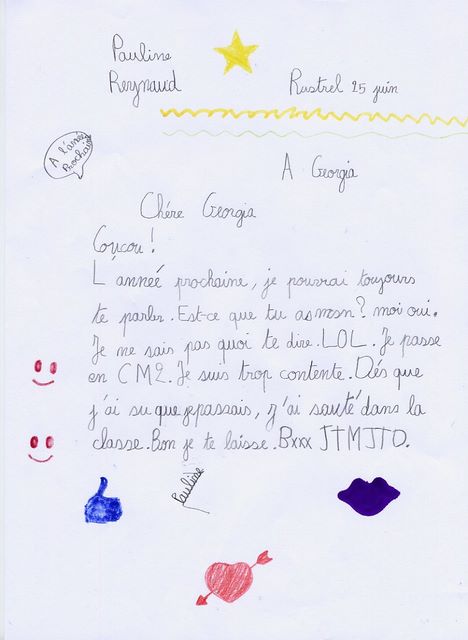 Pauline
Reynaud
Rustrel 25 juin
A l'année
Prochaine
A Georgia
Chére Georgia
Coucou !
L'année prochaine, je pourrai toujours
te parler. Est-ce que tu as msn? moi oui.
Je ne sais pas quoi te dire. LOL. Je passe
en CM2. Je suis trop contente. Dés que
j'ai su que je passais, j'ai sauté dans la
classe. Bon je te laisse. Bxxx JTMJTD.
Pauline